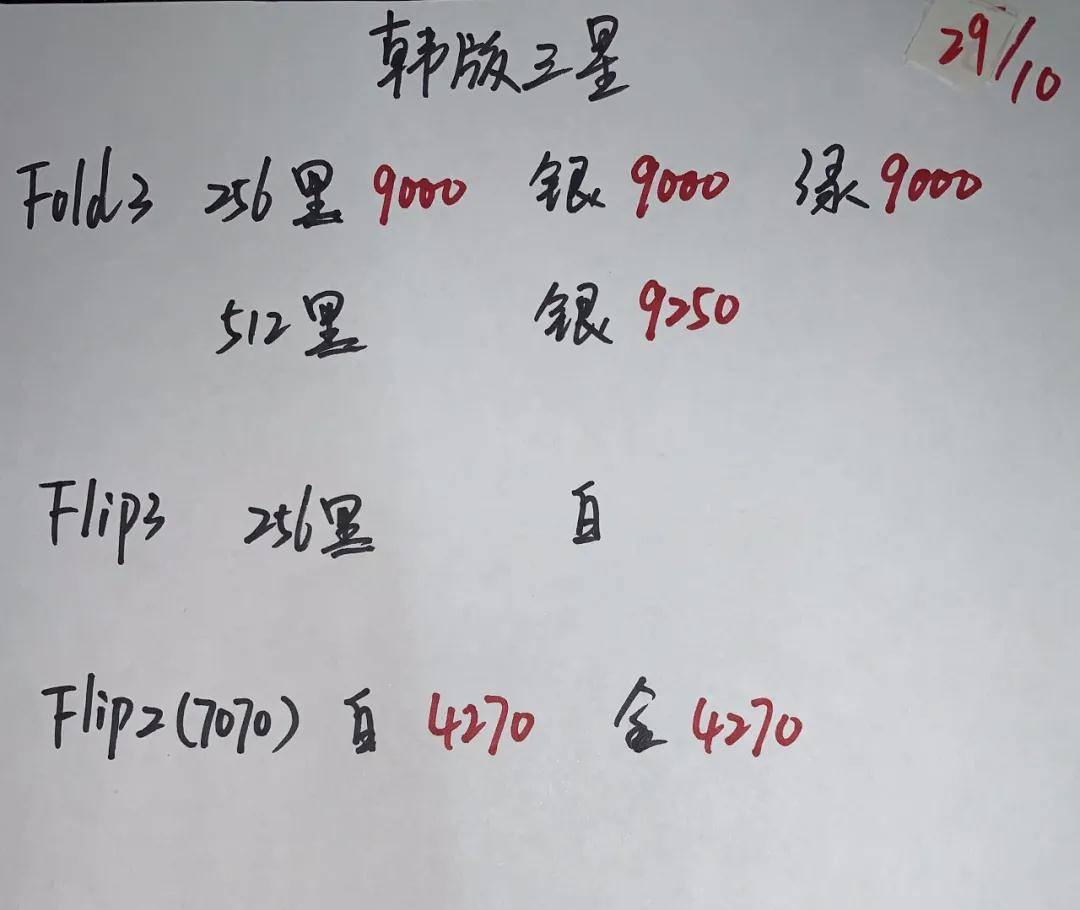 韩版三星 29/10
Fold3 256黑 9000 银 9000 绿 9000
512黑 银 9250
Flip3 256黑 白
Flip2(7070) 白 4270 金 4270